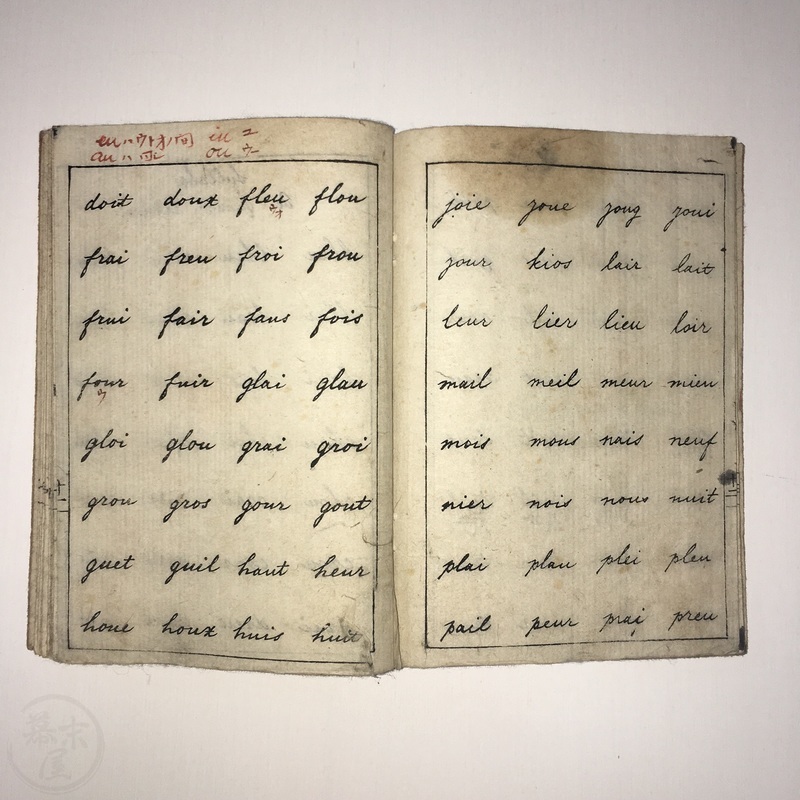 euハウトオノ間 iu ユ
auハ ou ウー
doit doux fleu flou
frai freu froi frou
frui fair faus fois
four fuir glai glau
gloi glou grai groi
grou gros gour gout
guet guil haut heur
houe houx huis huit
joie joue joug joui
jour kios lair lait
leur lier lieu loir
mail meil meur mieu
mois mous nais neuf
nier nois nous nuit
plai plau plei pleu
pail peur prai preu
幕末屋